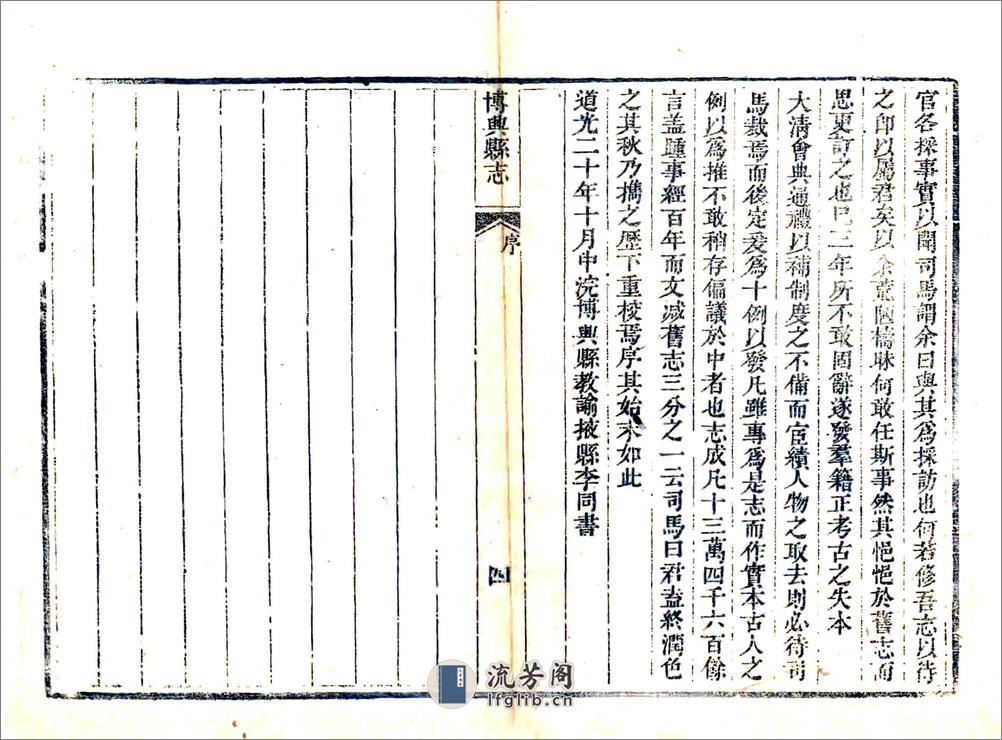 官各採事實以聞司馬謂余曰與其爲採訪也何若修吾志以待
之即以屬君矣以余荒陋檮昧何敢任斯事然其悒悒於舊志而
思更訂之也已三年所不敢固辭遂發羣籍正考古之失本
大清會典通禮以補制度之不備而宦績人物之取去則必待司
馬裁焉而後定爰爲十例以發凡雖專爲是志而作實本古人之
例以爲推不敢稍存偏議於中者也志成凡十三萬四千六百餘
言盖踵事經百年而文减舊志三分之一云司馬曰君盍終潤色
之其秋乃攜之歷下重校焉序其始末如此
道光二十年十月中浣博興縣教諭掖縣李同書
博興縣志
序
四
流芳阁
lfglib.cn